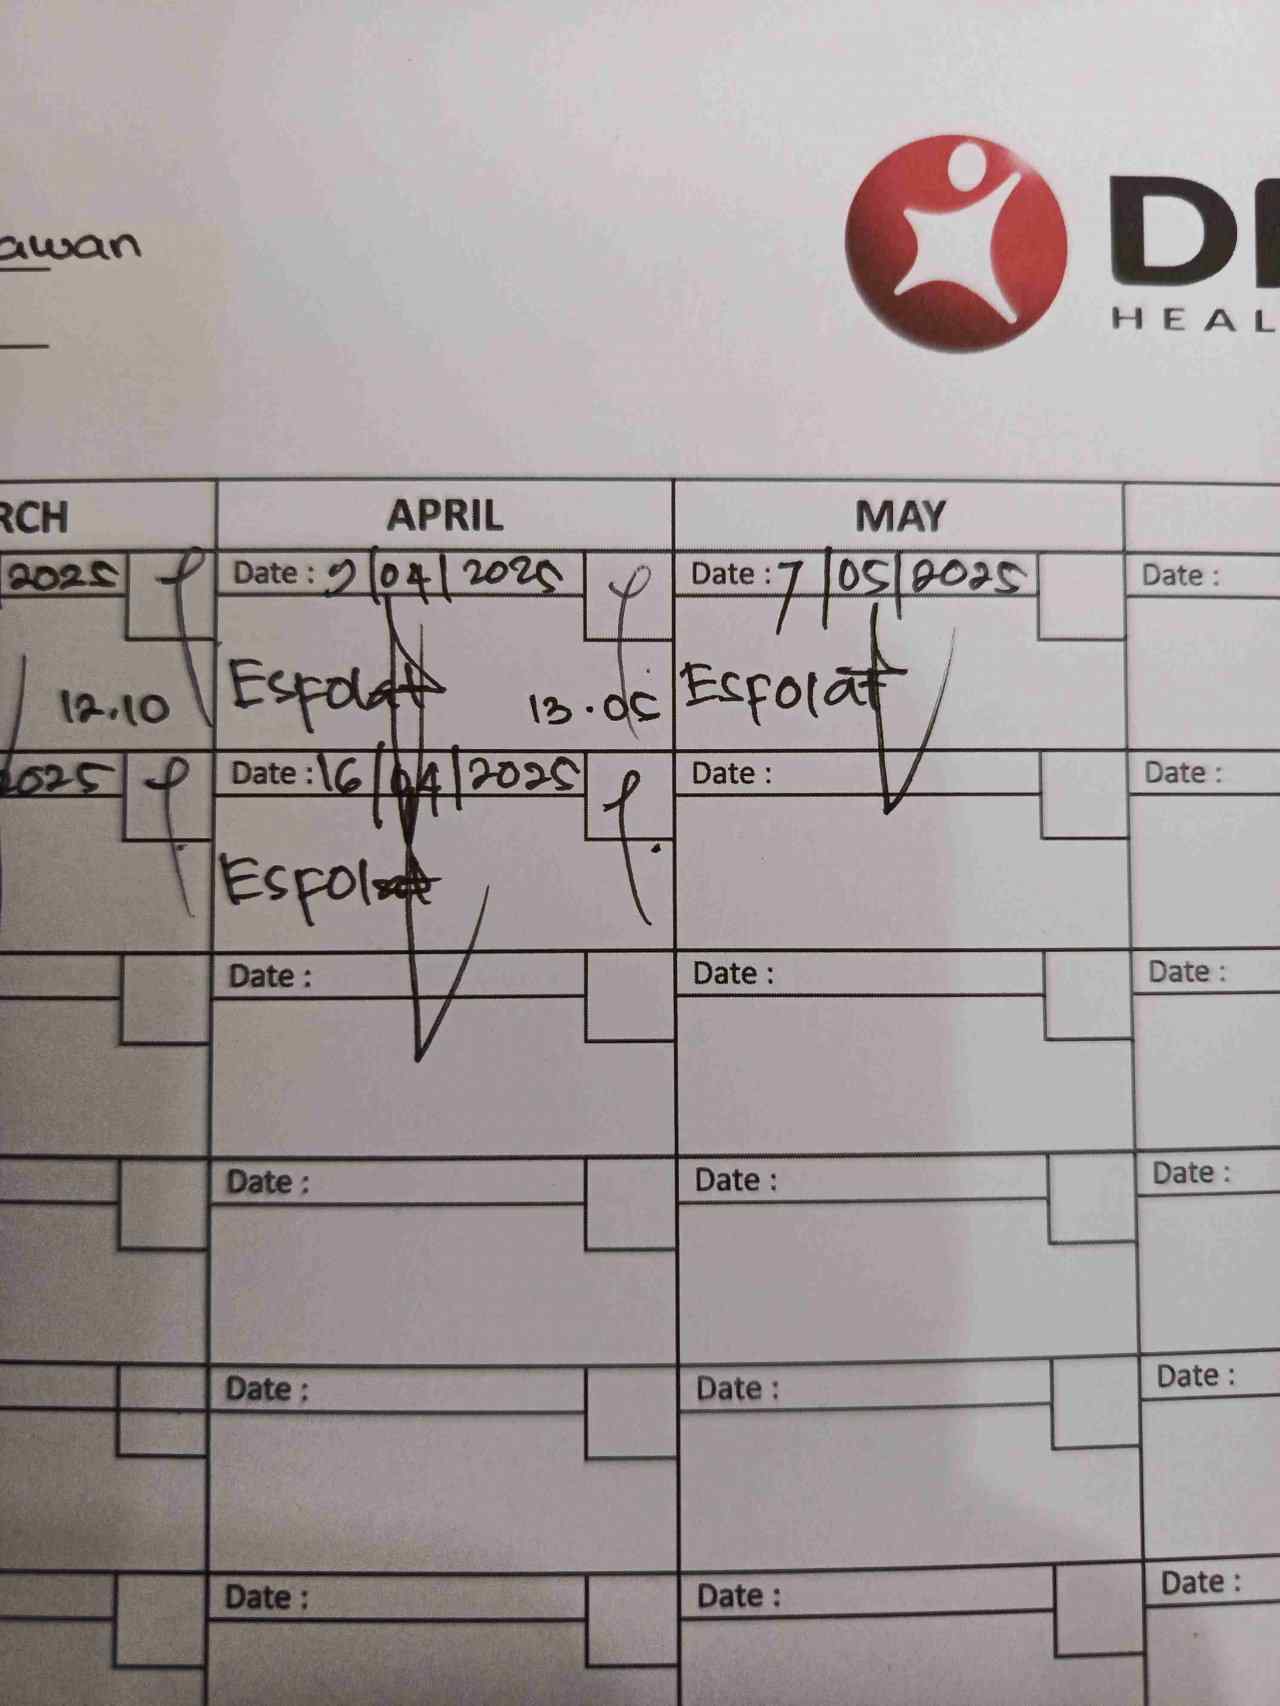 awan
DE
HEAL
RCH
APRIL
MAY
2025
Date : 9/04/2025
Date : 7/05/2025
Date :
12.10
Esfolat
13.05
Esfolat
2025
Date : 16/04/2025
Date :
Date :
Esfolat
Date :
Date :
Date :
Date :
Date :
Date :
Date :
Date :
Date :
Date :
Date :
Date :